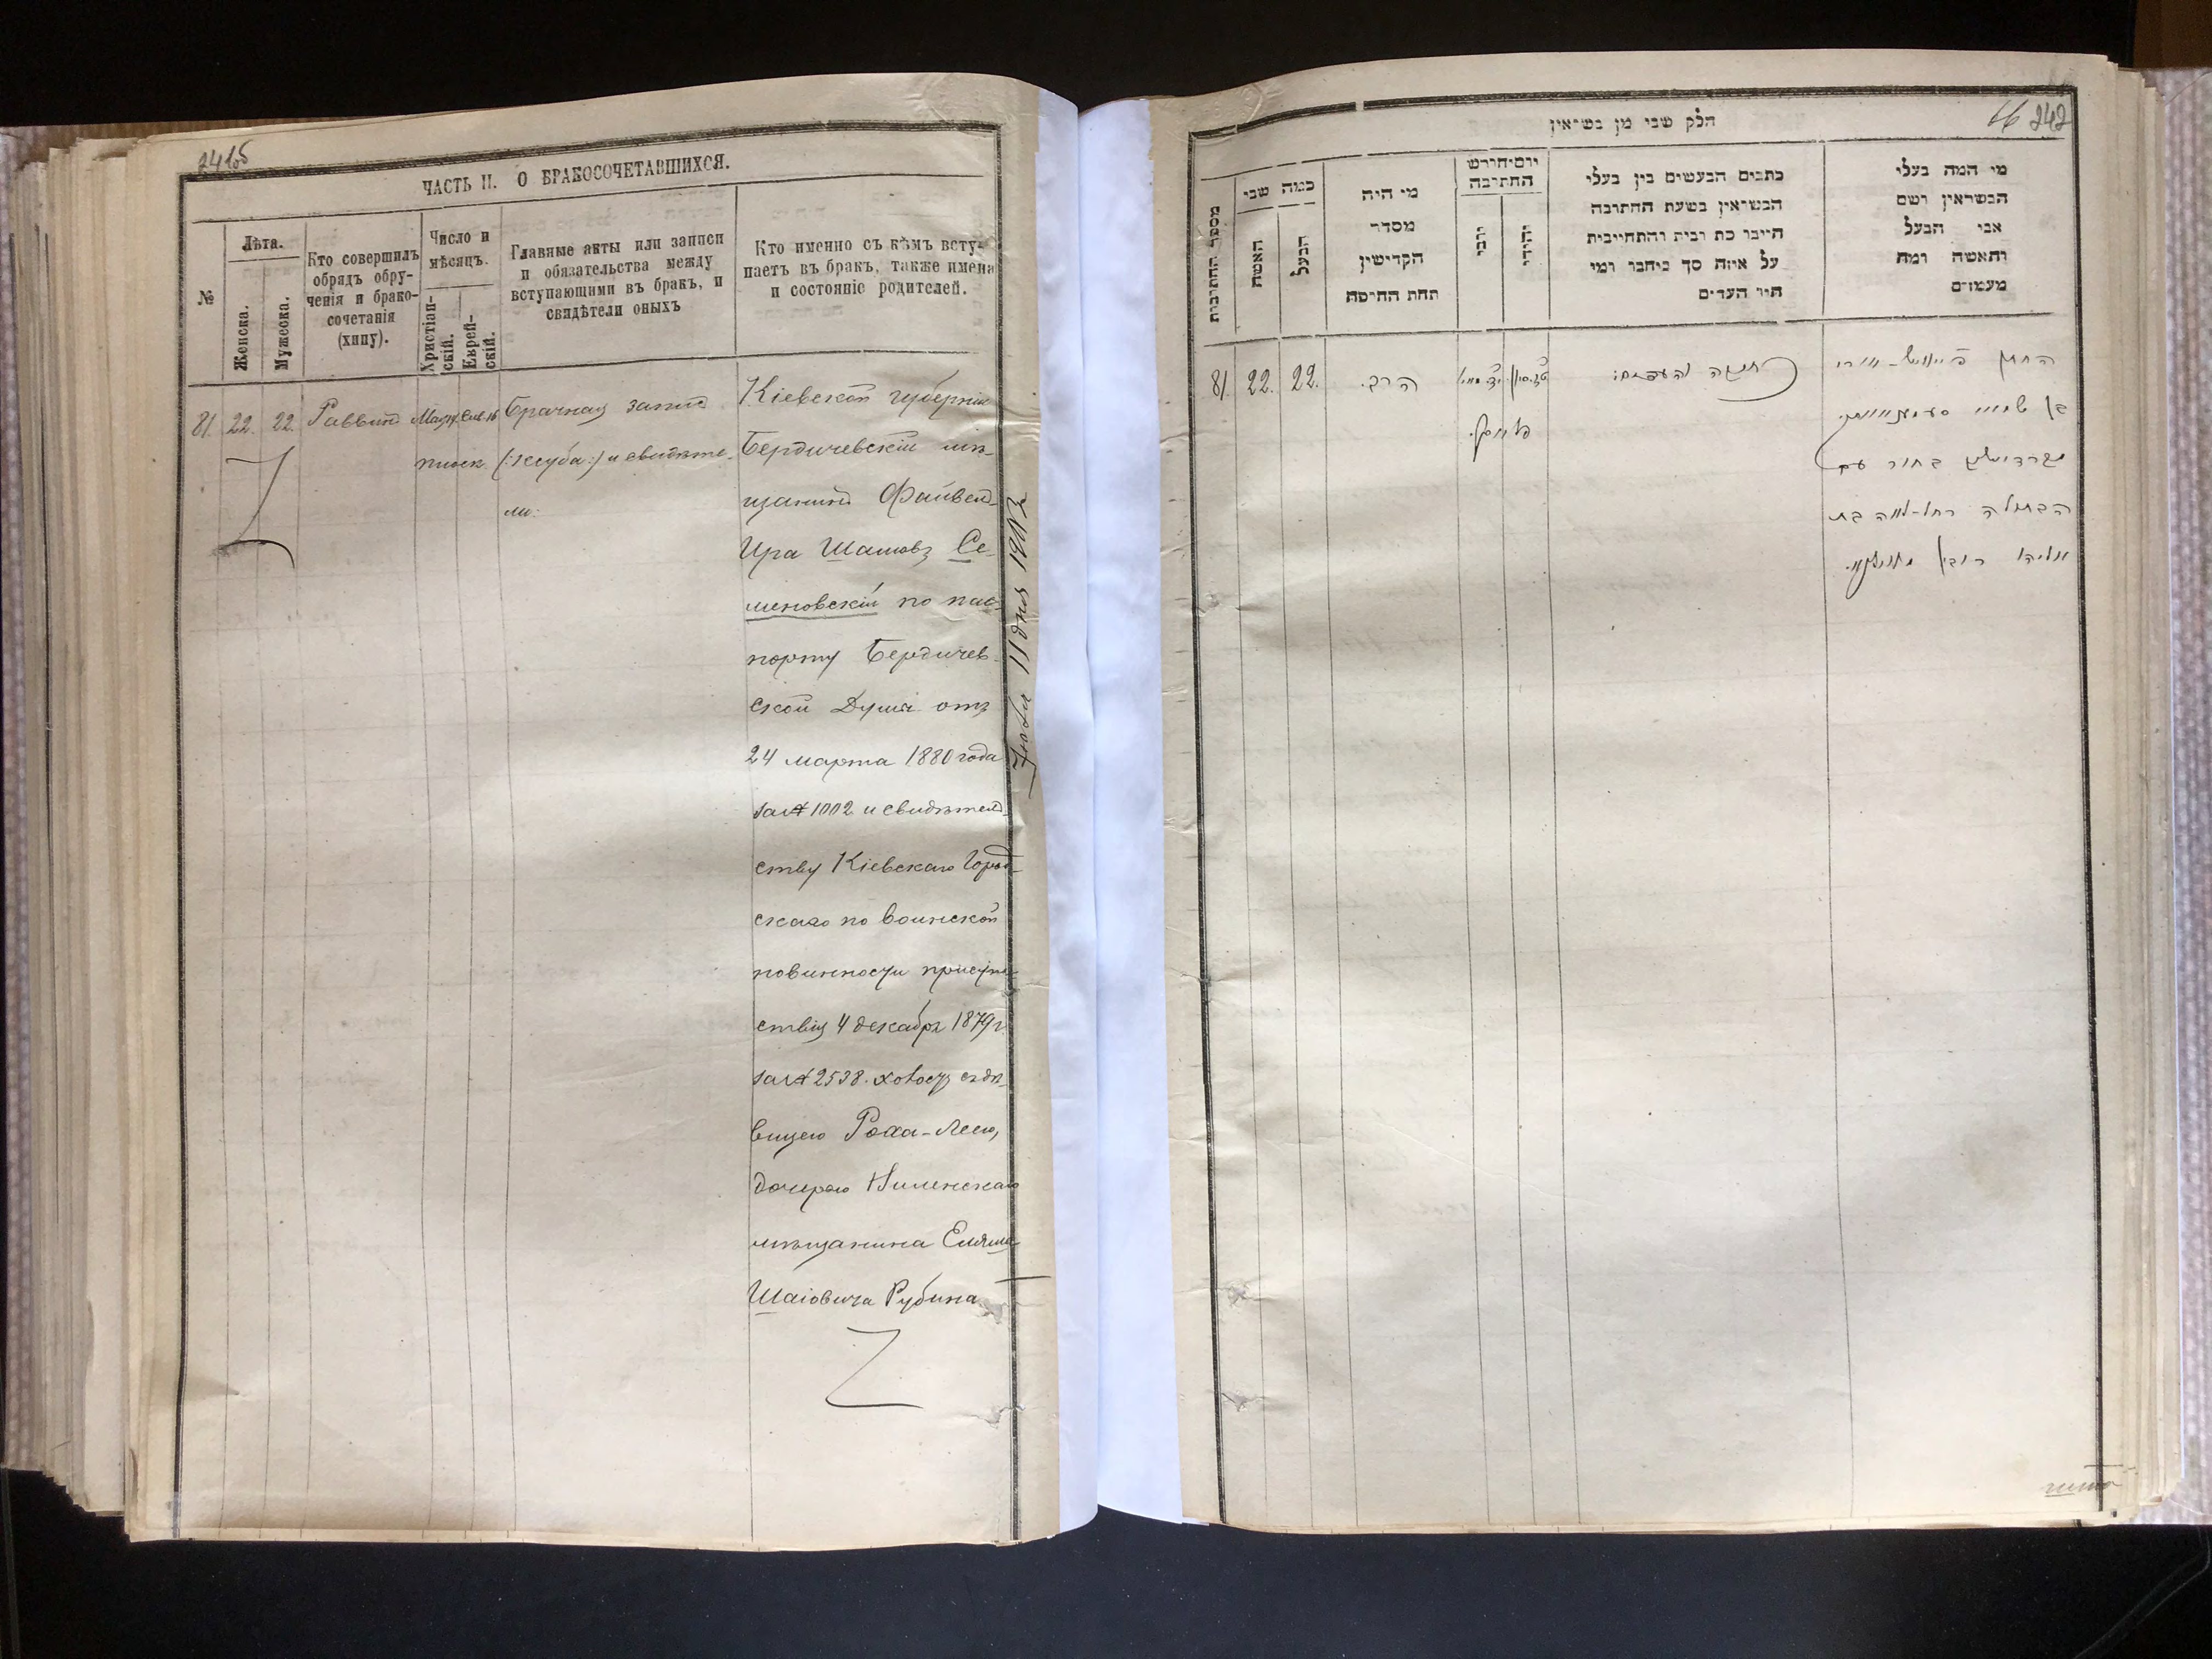 241об
ЧАСТЬ II. О БРАКОСОЧЕТАВШИХСЯ.
№
Лѣта.
Женска.
Мужеска.
Кто совершилъ
обрядъ обру-
ченія и брако-
сочетанія
(хипу).
Число и
мѣсяцъ.
Христіан-
скій.
Еврей-
скій.
Главные акты или записи
и обязательства между
вступающими въ бракъ, и
свидѣтели оныхъ
Кто именно съ кѣмъ всту-
паетъ въ бракъ, также имена
и состояніе родителей.
81.
22.
22.
Раввинъ
Брачная запись
(: ксуба:) и свидѣте-
ли:
Кіевской губерніи
Бердичевскій мѣ-
щанинъ Файвель-
Ира Шаіовъ Се-
меновскій по пас-
порту Бердичев-
ской Думы отъ
24 марта 1880 года
за № 1002 и свидѣтель-
ству Кіевскаго Город-
скаго по воинской
повинности присут-
ствія 4 декабря 1879 г.
за № 2538. холостъ съ дѣ-
вицею Роха-Леею,
дочерью
мѣщанина
Шаіовича Рубина
11 дня
66 242
חלק שני מן נשואין
מספר החתונות
כמה שני
האשה
הבעל
מי היה
מסדר
הקדישין
תחת החופה
יום וחודש
החתונה
נוצרי
יהודי
כתבים הנעשים בין בעלי
הנשואין בשעת החתונה
היינו כתובות והתחייבות
על איזה סך ביניהם ומי
היו העדים
מי המה בעלי
הנשואין ושם
אבי הבעל
והאשה ומה
מעמדם
81.
22.
22.
הרב.
החתן
בן
בחור עם
הבתולה רחל-לאה בת
אליהו רובין